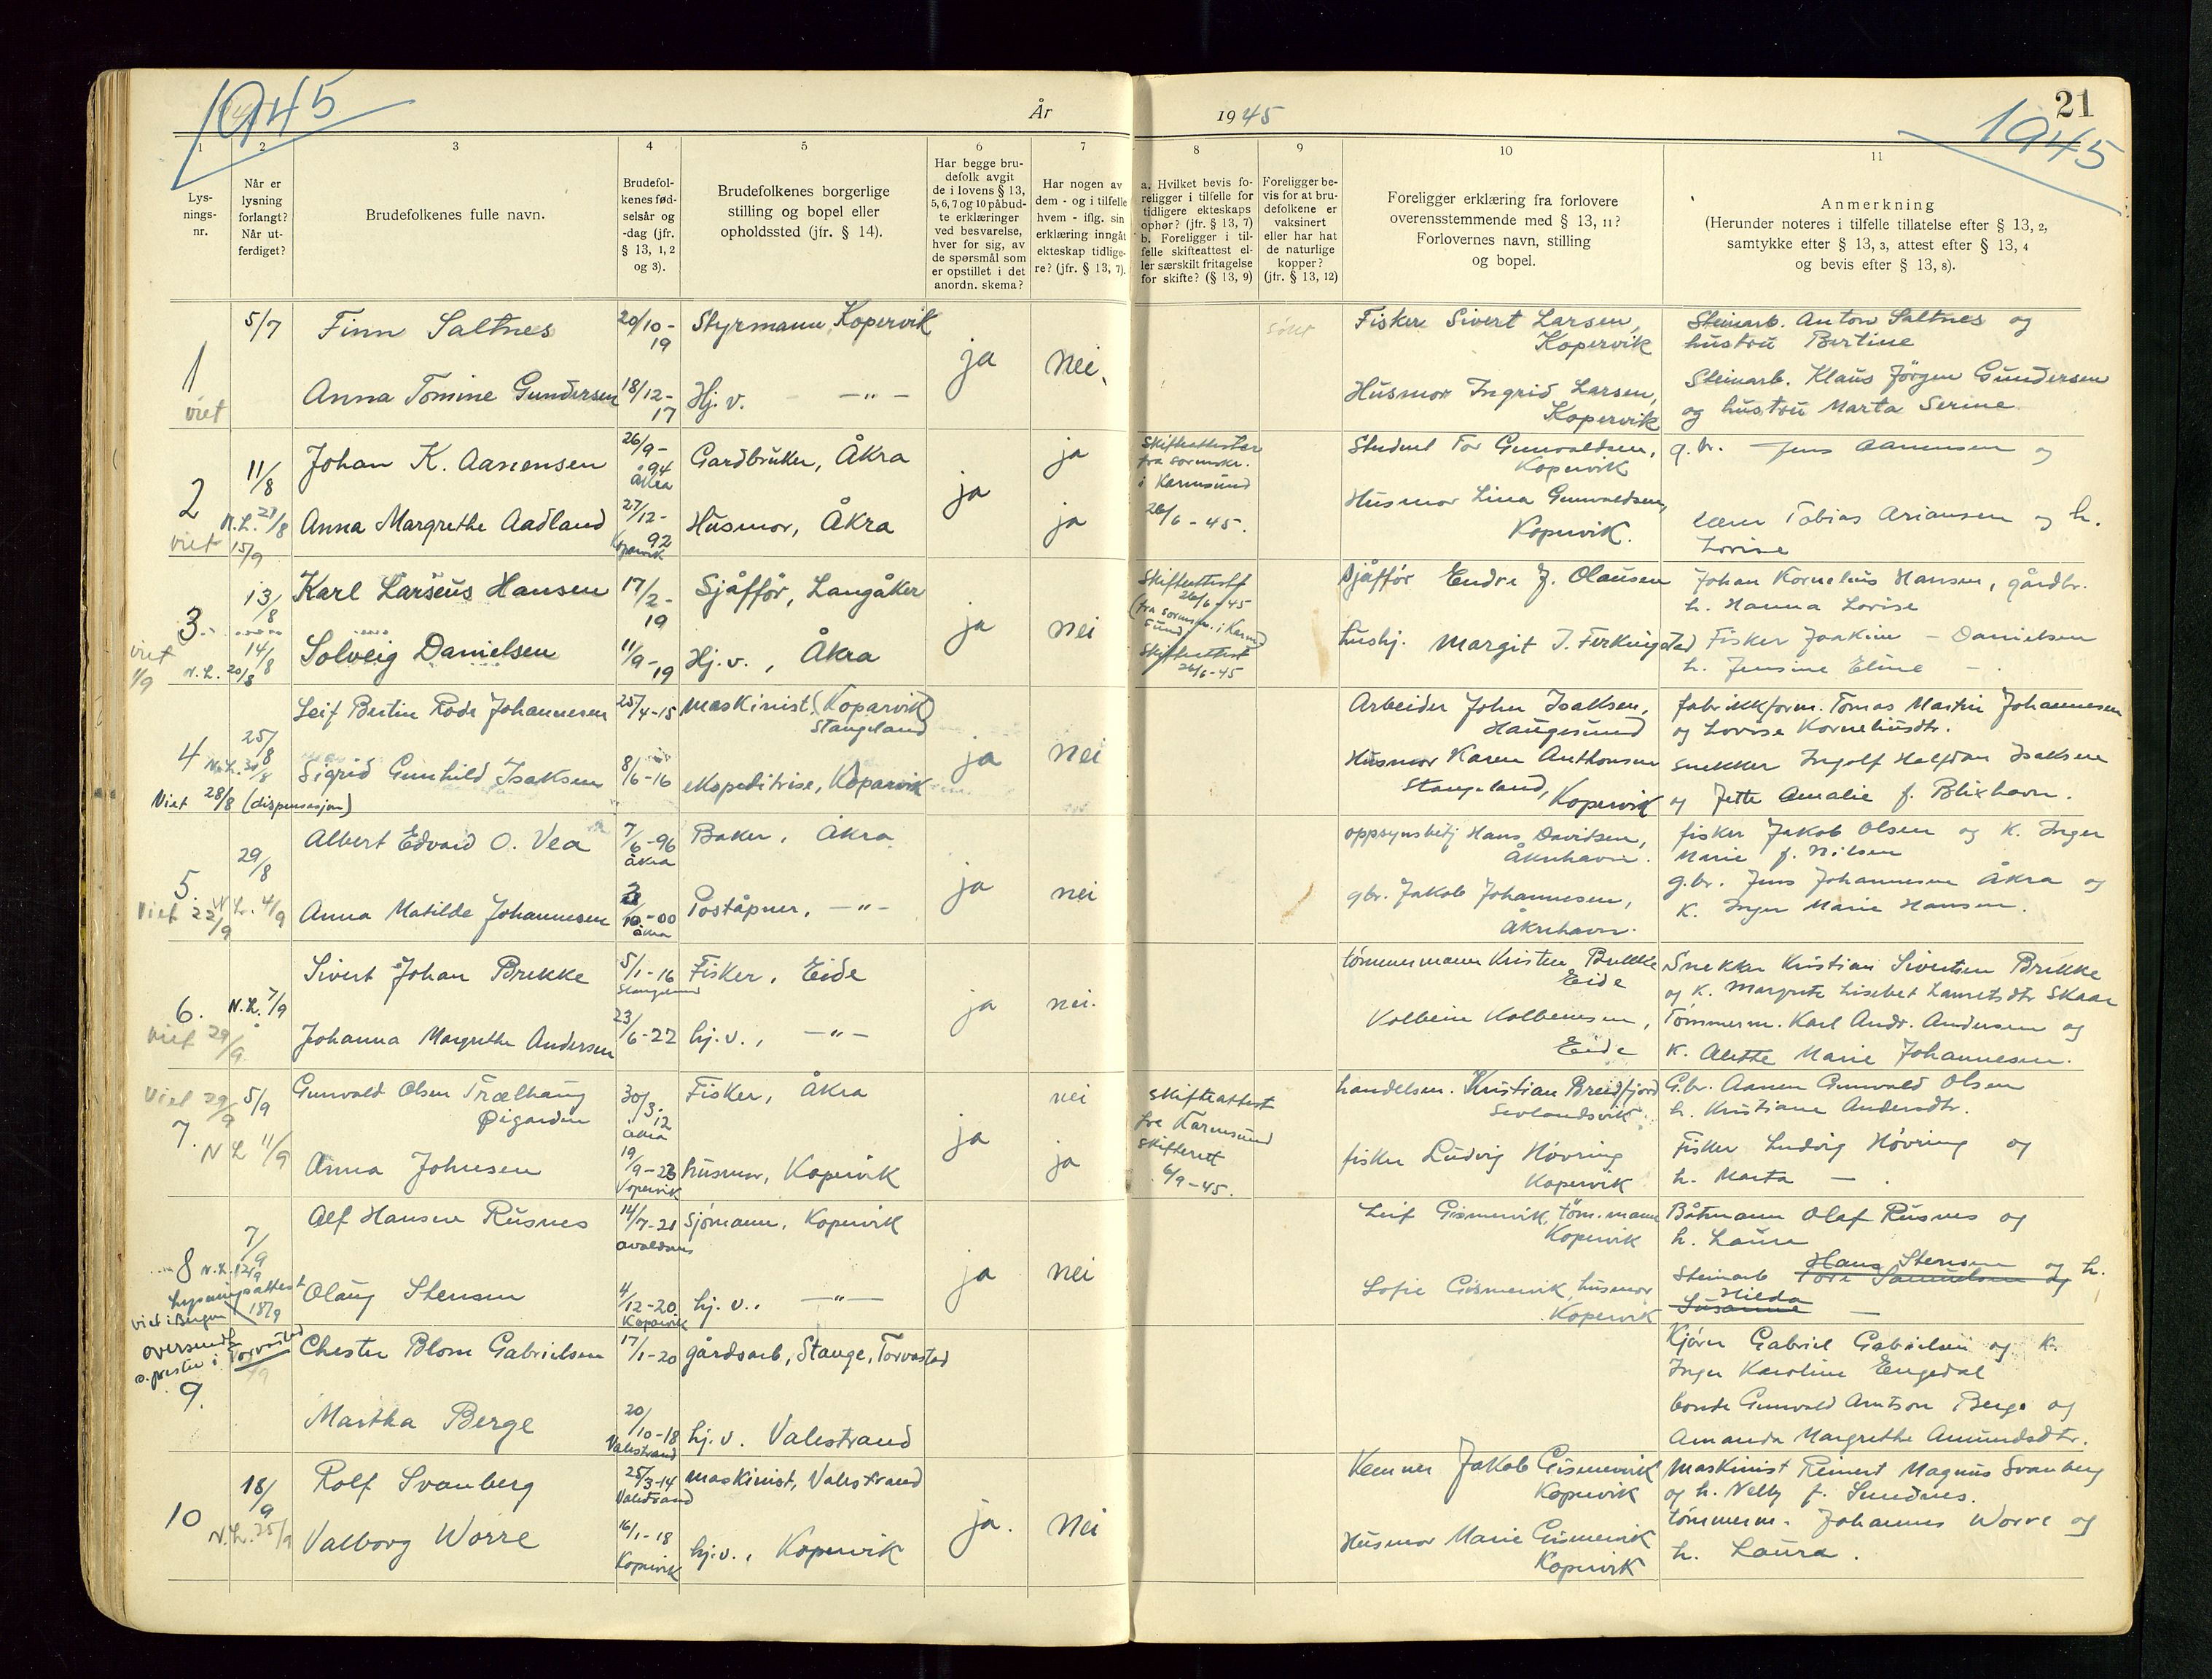 1945
År
1945
21
1945
1
2
3
4
5
6
7
8
9
10
11
Lys-
nings-
nr.
Når er
lysning
forlangt?
Når ut-
ferdiget?
Brudefolkenes fulle navn.
Brudefol-
kenes fød-
selsår og
-dag (jfr.
§ 13, 1, 2
og 3).
Brudefolkenes borgerlige
stilling og bopel eller
opholdssted (jfr. § 14).
Har begge bru-
defolk avgit
de i lovens § 13,
5, 6, 7 og 10 påbud-
te erklæringer
ved besvarelse,
hver for sig, av
de spørsmål som
er opstillet i det
anordn. skema?
Har nogen av
dem - og i tilfelle
hvem - iflg. sin
erklæring inngåt
ekteskap tidlige-
re? (jfr. § 13, 7).
a. Hvilket bevis fo-
religger i tilfelle for
tidligere ekteskaps
ophør? (jfr. § 13, 7)
b. Foreligger i til-
felle skifteattest el-
ler særskilt fritagelse
for skifte? (§ 13, 9)
Foreligger be-
vis for at bru-
defolkene er
vaksinert
eller har hat
de naturlige
kopper?
(jfr. § 13, 12)
Foreligger erklæring fra forlovere
overensstemmende med § 13, 11?
Forlovernes navn, stilling
og bopel.
Anmerkning
(Herunder noteres i tilfelle tillatelse efter § 13, 2,
samtykke efter § 13, 3, attest efter § 13, 4
og bevis efter § 13, 8).
1
viet
5/7
Finn Saltnes
20/10-19
Styrmann, Kopervik
ja
nei
Fisker Sivert Larsen,
Kopervik
Steinarb. Anton Saltnes og
hustru Bertine
Anna Tomine Gundersen
18/12-17
Hj. v. -"-
Husmor Ingrid Larsen,
Kopervik
Steinarb. Klaus Jörgen Gundersen
og hustru Marta Serine
2
viet 15/9
11/8
N.L. 21/8
Johan K. Aanensen
26/9-94
Åkra
Gardbruker, Åkra
ja
ja
Skifteattester
fra sorenskr.
i Karmsund
26/6-45.
Student Tor Gunvaldsen,
Kopervik
g.br. Jens Aanensen og
Anna Margrethe Aadland
27/12-92
Kopervik
Husmor, Åkra
ja
Husmor Lina Gunvaldsen,
Kopervik.
Tobias Ariansen og h.
Lovise
3.
viet 1/9
13/8
14/8
N.L. 20/8
Karl Larseus Hansen
17/2-19
Sjåffør, Langåker
ja
nei
Skifteattest
26/6-45
(fra sorensk. i Karmsund)
Skifteattest
26/6-45
Sjåffør Endre J. Olausen
Johan Kornelius Hansen, gårdbr.
h. Hanna Lovise
Solveig Danielsen
11/9-19
Hj. v., Åkra
hushj. Margit J. Ferkingstad
Fisker Joakim - Danielsen
h. Jensine Eline -.
4
25/8
N.L. 30/8
Viet 28/8 (dispensasjon)
Leif Bertin Rode Johannesen
25/4-15
Maskinist (Koparvik)
Stangeland
ja
nei
Arbeider John Isaksen,
Haugesund
fabrikkform. Tomas Martin Johannesen
og Lovise Korneliusdtr.
Sigrid Gunhild Isaksen
8/6-16
ekspeditrise, Koparvik
Husmor Karen Anthonsen
Stangeland, Kopervik
snekker Ingolf Halfdan Isaksen
og Jette Amalie f. Blixhavn.
5.
Viet 22/9
29/8
N.L. 4/9
Albert Edvard O. Vea
7/6-96
Åkra
Baker, Åkra
ja
nei
oppsynsbetj Hans Davidsen,
Åkrehavn.
fisker Jakob Olsen og K. Inger
Marie f. Nilsen
Anna Matilde Johannesen
/10-00
Åkra
Poståpner, -"-
gbr. Jakob Johannesen,
Åkrehavn.
g.br. Jens Johannesen Åkra og
K. Inger Marie Hansen.
6.
Viet 29/9
N.L. 7/9
Sivert Johan Brekke
5/1-16
Fisker, Eide
ja
nei.
tømmermann Kristen Brekke
Eide
Snekker Kristian Sivertsen Brekke
og K. Margrete Lisebet Lauretsdtr Skaar
Johanna Margrethe Andersen
23/6-22
hj. v., -"-
Kolbein Kolbeinsen,
Eide
Tømmerm. Karl Andr. Andersen og
K. Alette Marie Johannesen.
7.
Viet 29/9
5/9
N L 11/9
Gunvald Olsen Trælhaug
Øigarden
30/3-12
Åkra
Fisker, Åkra
ja
nei
skifteattest
fra Karmsund
skifterett
6/9-45.
handelsm. Kristian Breidfjord
Sevlandsvik
G.br. Aanen Gunvald Olsen
h. Kristiane Andersdtr.
Anna Johnsen
19/9-23
Kopervik
husmor, Kopervik
ja
fisker Ludvig Høvring
Kopervik
Fisker Ludvig Høvring og
h. Marta -.
8
7/9
N.L. 12/9
Lysningsattest
18/9
viet i Bergen
Alf Hansen Rusnes
14/7-21
Avaldsnes
Sjømann, Kopervik
ja
nei
Leif Gismervik, tøm.mann
Kopervik
Båtmann Olaf Rusnes og
h. Laura
Olaug Stensen
4/12-20
Kopervik
hj. v., -"-
Sofie Gismervik, husmor
Kopervik
Steinarb Tore Samuelsen og
Hans Stensen og h.
Susanne
Hilda -
oversendt
s.presten i Torvastad
9.
Chester Blom Gabrielsen
17/1-20
gårdsarb, Stange, Torvastad
Kjørn Gabriel Gabrielsen og K.
Inger Karoline Engedal
Martha Berge
20/10-18
Valestrand
hj. v. Valestrand
bonde Gunvald Arntson Berge og
Amanda Margrethe Amundsdtr.
10
18/9
N.L. 25/9
Rolf Svanberg
25/3-14
Valestrand
maskinist, Valestrand
ja.
nei
Kemner Jakob Gismervik
Kopervik
Maskinist Reinert Magnus Svanberg
og h. Nelly f. Sundnes.
Valborg Worre
16/1-18
Kopervik
hj. v., Kopervik
Husmor Marie Gismervik
Kopervik
tømmerm. Johannes Worre og
h. Laura.